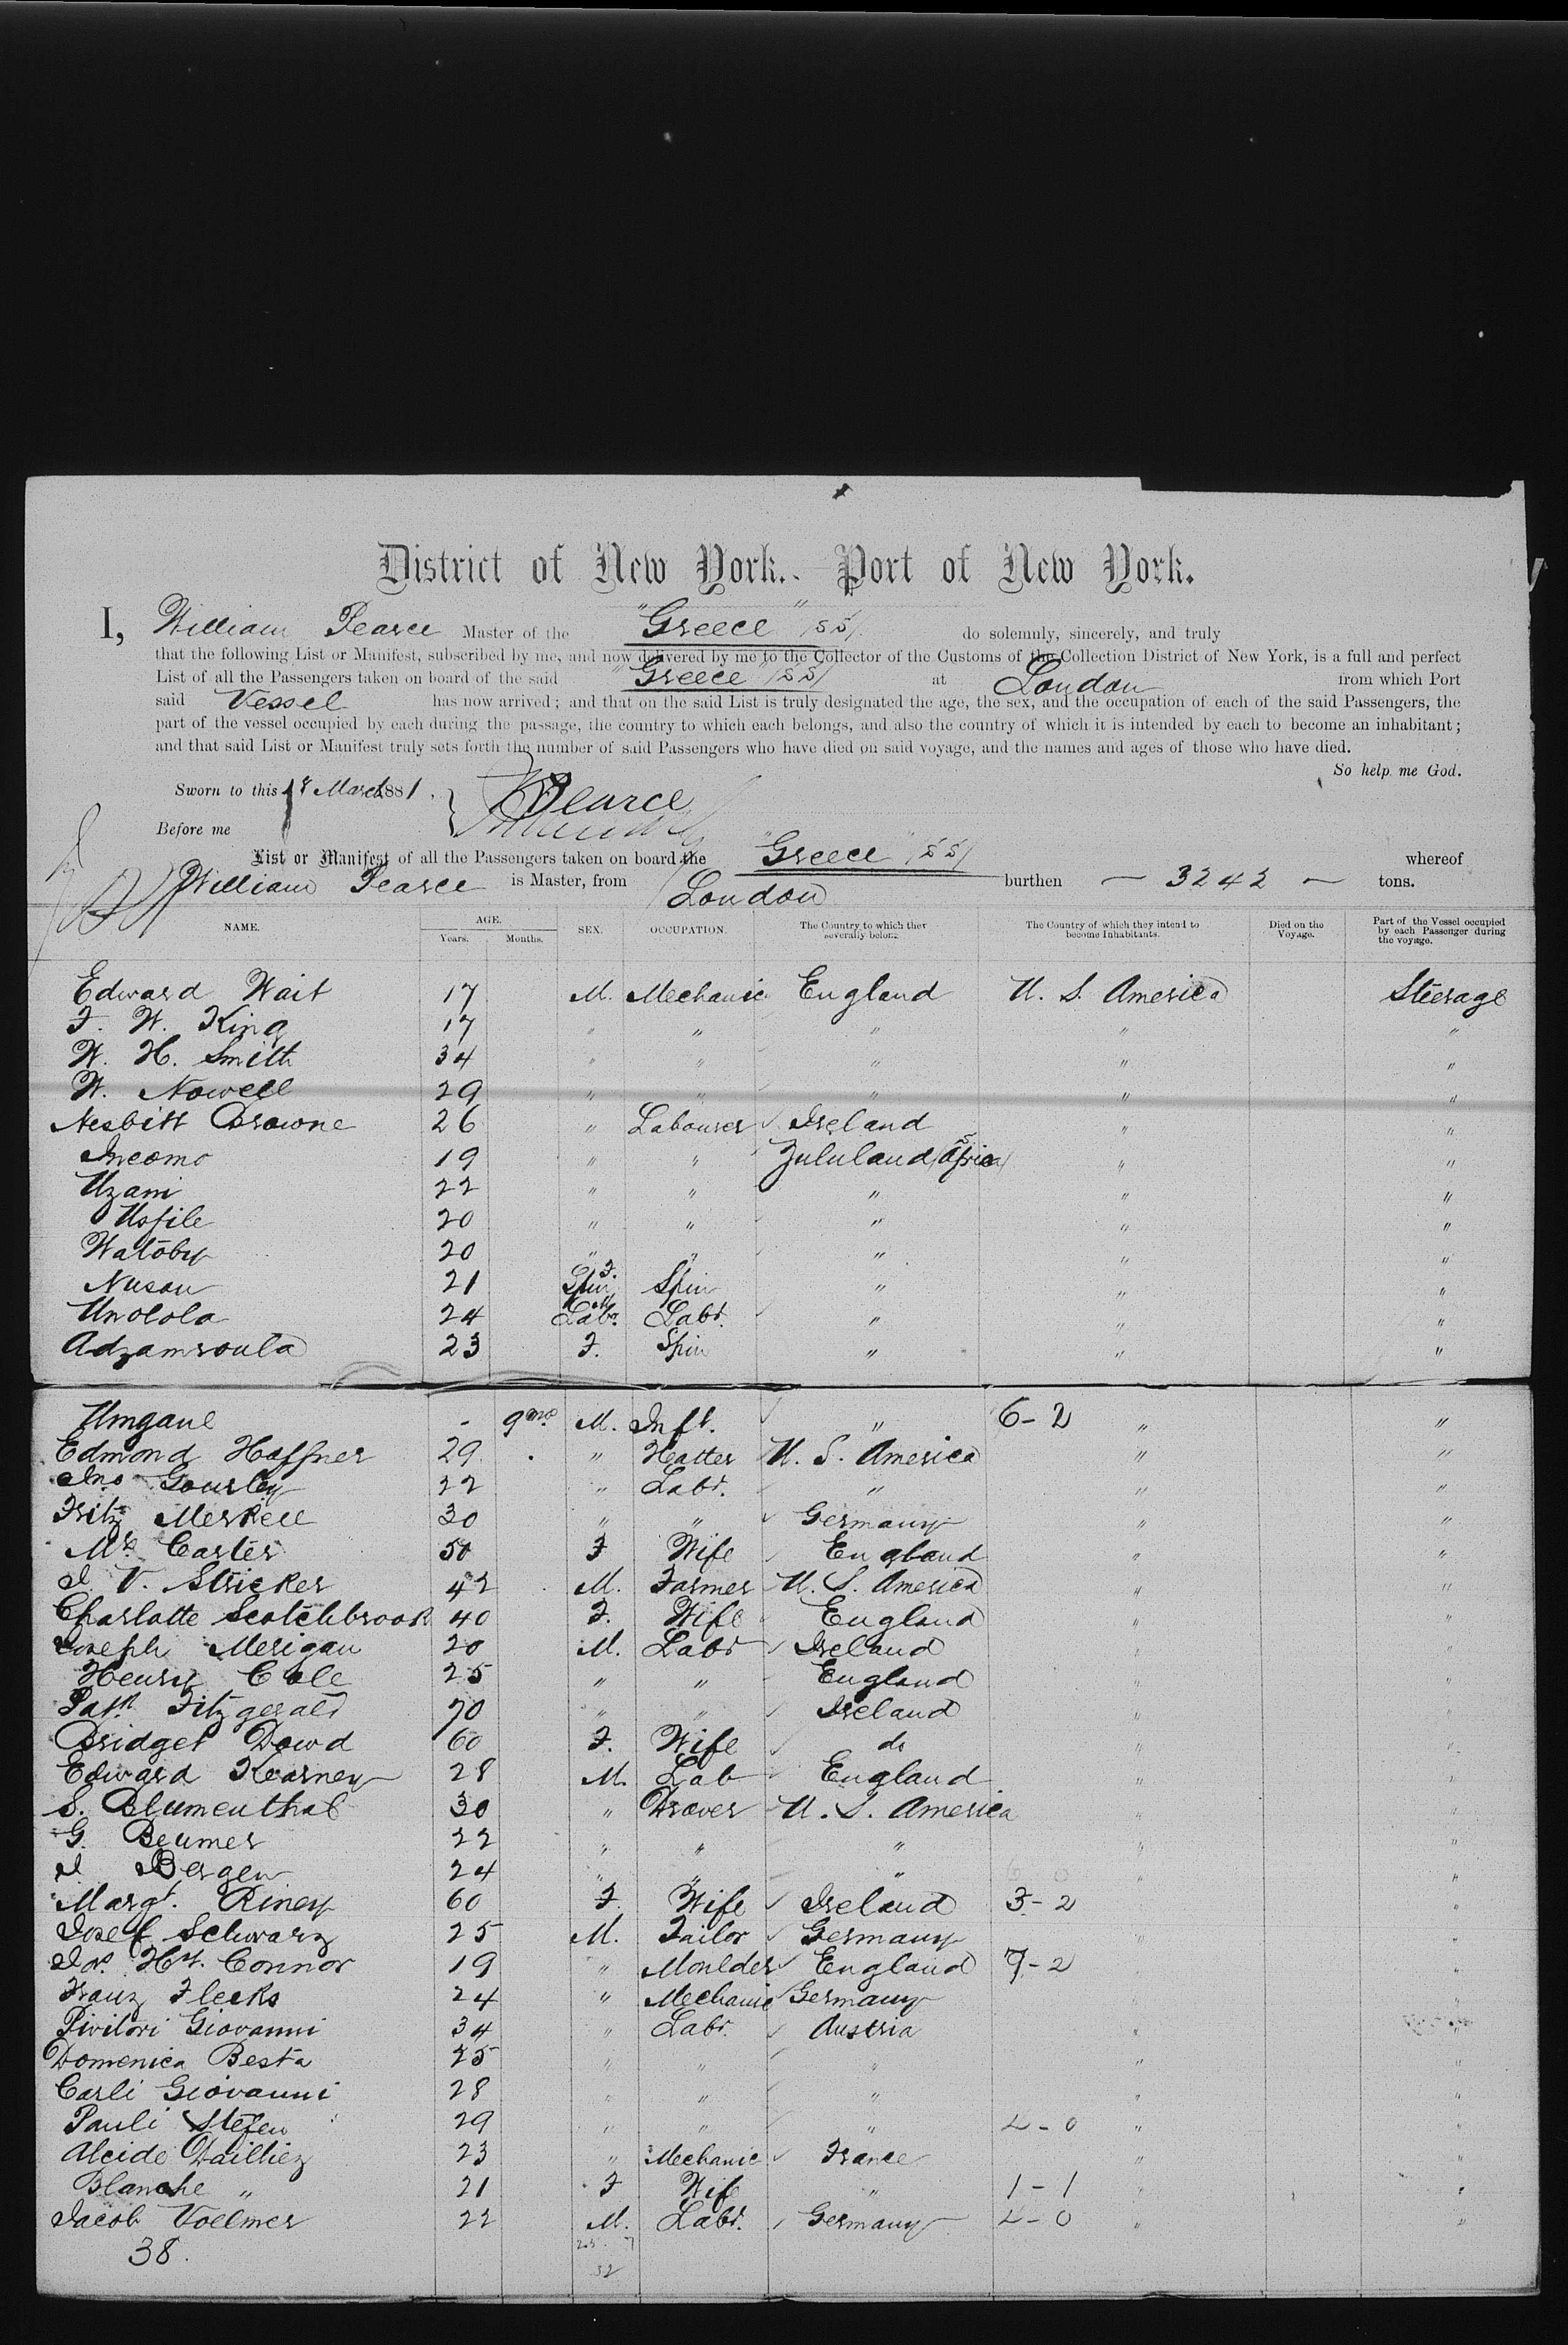 District of New York. Port of New York.
I, William Pearce Master of the "Greece" (SS) do solemnly, sincerely, and truly
that the following List or Manifest, subscribed by me, and now delivered by me to the Collector of the Customs of the Collection District of New York, is a full and perfect
List of all the Passengers taken on board of the said "Greece" (SS) at London from which Port
said Vessel has now arrived; and that on the said List is truly designated the age, the sex, and the occupation of each of the said Passengers, the
part of the vessel occupied by each during the passage, the country to which each belongs, and also the country of which it is intended by each to become an inhabitant;
and that said List or Manifest truly sets forth the number of said Passengers who have died on said voyage, and the names and ages of those who have died.
So help me God.
Sworn to this 18 March 1881. Pearce
Before me
List or Manifest of all the Passengers taken on board the "Greece" (SS) whereof
William Pearce is Master, from London burthen — 3242 — tons.
NAME. AGE. Years. Months. SEX. OCCUPATION. The Country to which they severally belong. The Country of which they intend to become Inhabitants. Died on the Voyage. Part of the Vessel occupied by each Passenger during the voyage.
Edward Wait 17 M. Mechanic England U. S. America Steerage
F. W. King 17 " " " " "
W. H. Smith 34 " " " " "
W. Nowell 29 " " " " "
Nesbitt Browne 26 " Labourer Ireland " "
Incomo 19 " " Zululand (S. Africa) " "
Uzani 22 " " " " "
Usfile 20 " " " " "
Watoby 20 " " " " "
Nusan 21 Spin F. Spin " " "
Unolola 24 Labr. M Labr. " " "
Adzamroula 23 F. Spin " " "
Umgane - 9 mo M. Inft. " 6-2 " "
Edmond Haffner 29 " Hatter U. S. America " "
Jno Gourley 22 " Labr. " " "
Fritz Merkell 30 " " Germany " "
Mrs. Carter 50 F Wife England " "
J. V. Stricker 42 M. Farmer U. S. America " "
Charlotte Scotchbrook 40 F. Wife England " "
Joseph Merigan 20 M. Labr Ireland " "
Henry Cole 25 " " England " "
Patk. Fitzgerald 70 " " Ireland " "
Bridget Dowd 60 F. Wife do " "
Edward Kearney 28 M. Lab England " "
S. Blumenthal 30 " Drover U. S. America " "
G. Beumer 22 " " " " "
J Bergen 24 " " " " "
Margt. Riney 60 F. Wife Ireland 3-2 "
Josef Schwarz 25 M. Tailor Germany " "
Hy. Connor 19 " Moulder England 7-2 "
Franz Flecks 24 " Mechanic Germany " "
Pivitori Giovanni 34 " Labr. Austria " "
Domenica Besta 25 " " " " "
Carli Giovanni 28 " " " " "
Pauli Stefen 29 " " " 4-0 " "
Alcide Dailliez 23 " Mechanic France " "
Blanche " 21 F Wife " 1-1 " "
Jacob Voelmer 22 M. Labr. Germany 4-0 " "
38.
32